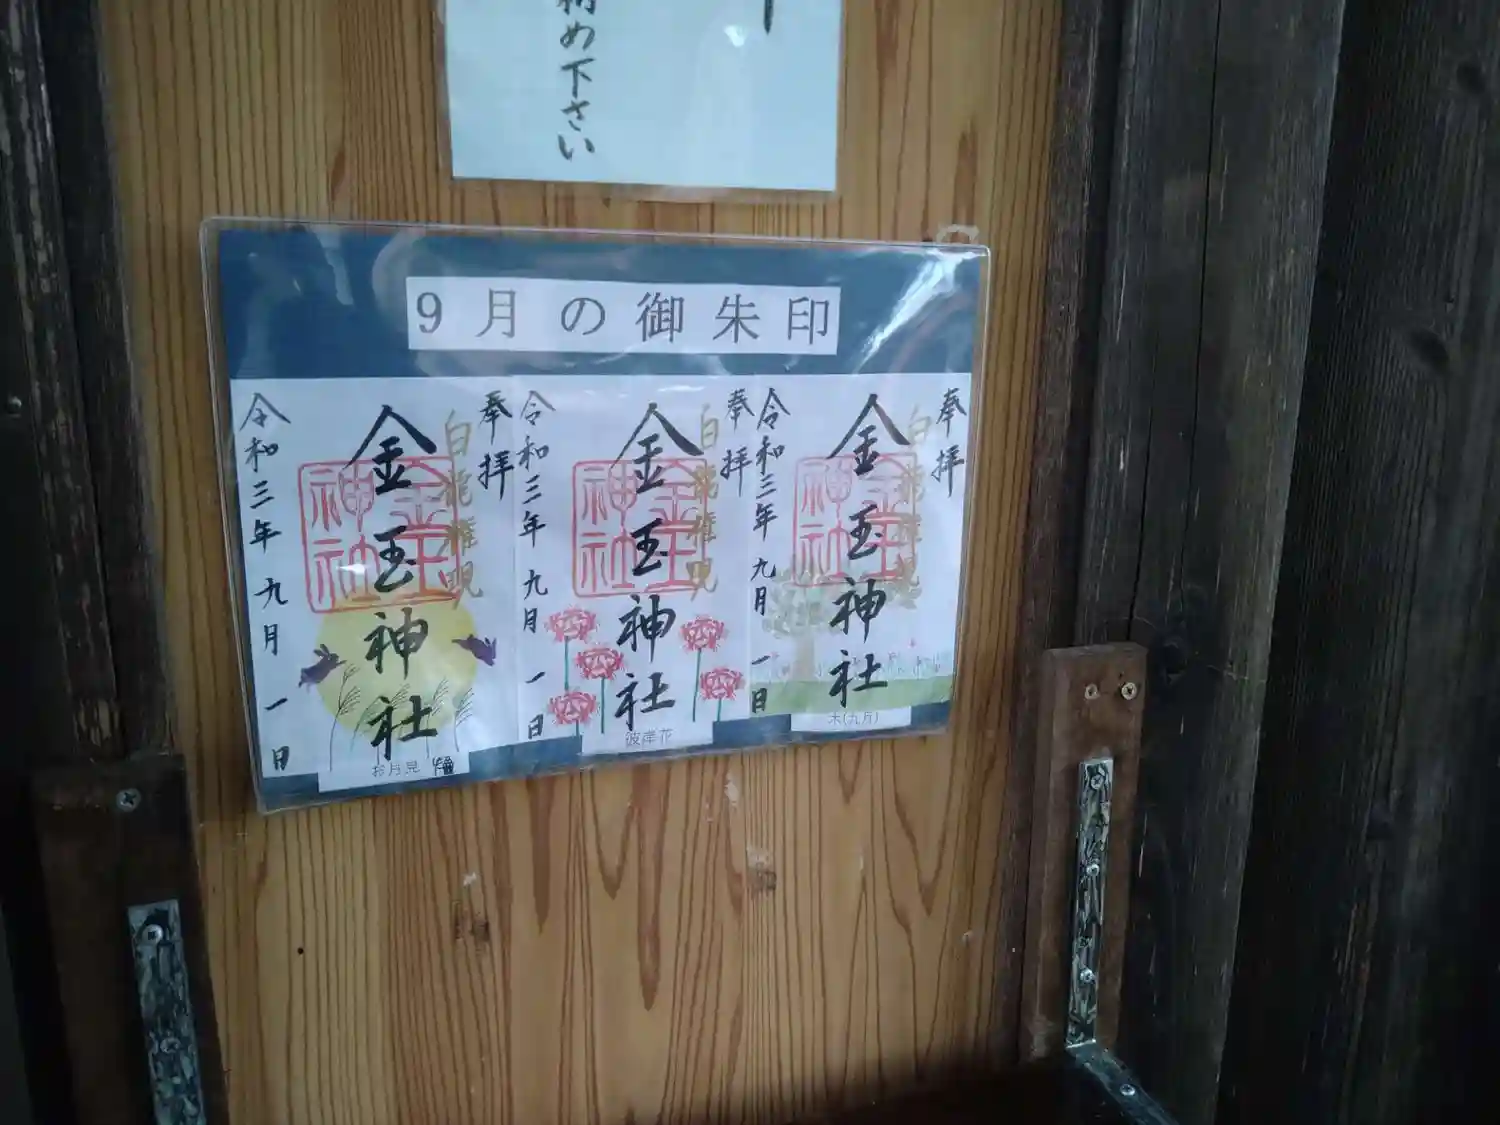 納め下さい
9月の御朱印
奉拝
白龍権現
金玉神社
令和三年 九月 一日
木(九月)
奉拝
白龍権現
金玉神社
令和三年 九月 一日
彼岸花
奉拝
白龍権現
金玉神社
令和三年 九月 一日
お月見
金玉神社
金玉神社
金玉神社